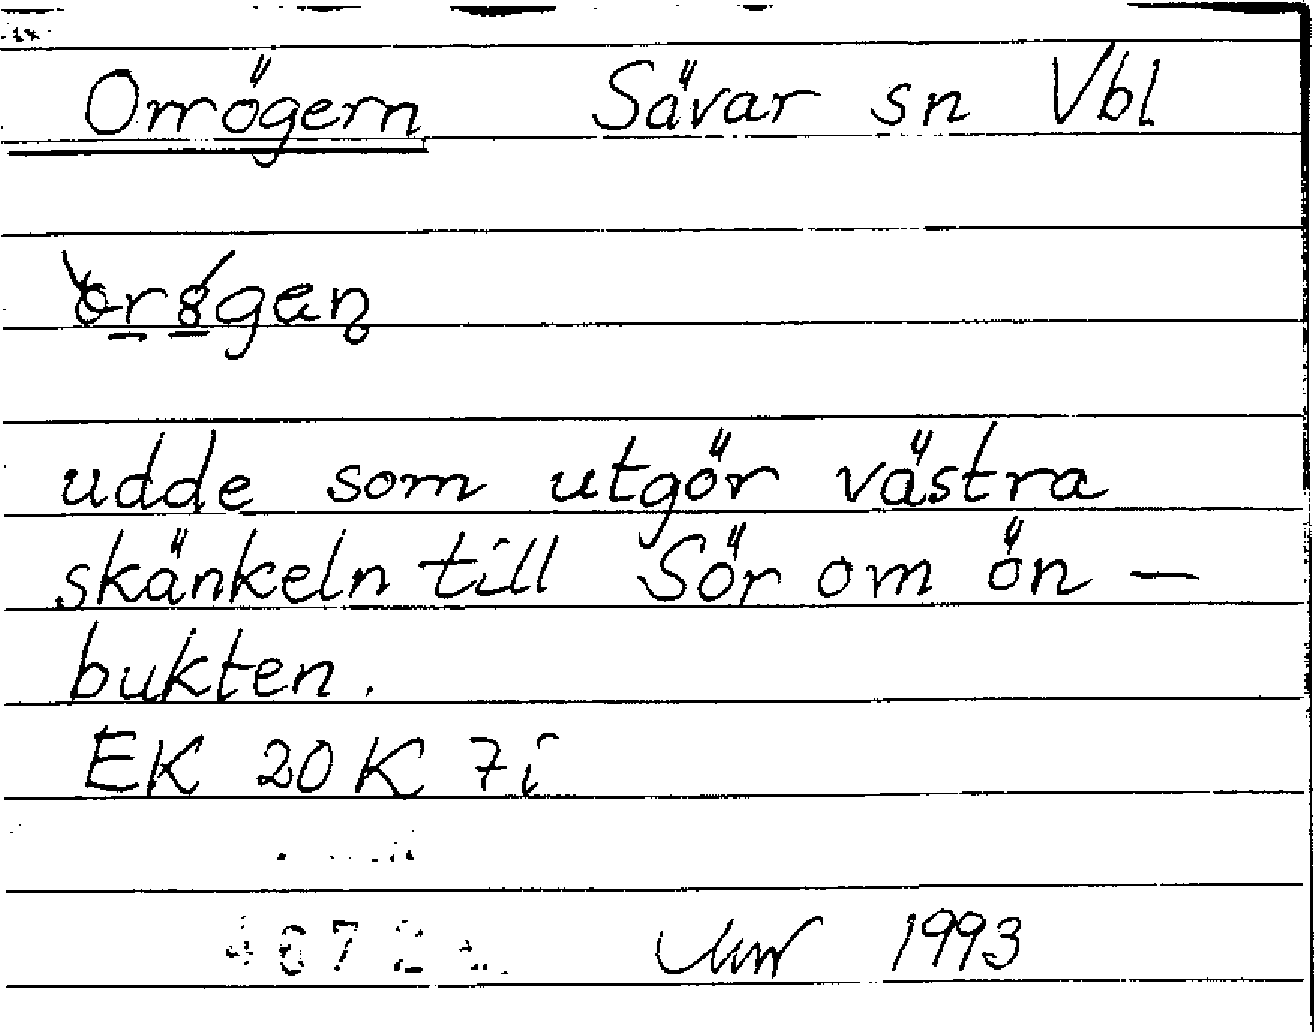 Orrögern Sävar sn Vbl
udde som utgör västra
skänkeln till Sör om ön -
bukten.
EK 20 K 7i
1993